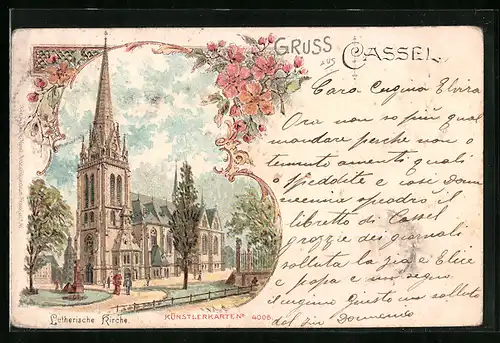 GRUSS
AUS
CASSEL.
Cara Cugina Elvira
Ora non so più qual
mandare perche non o
tenuto amenti quali
o speddite e cosi
spedro il
libretto di Cassel
grazie dei giornali
salluta la zia e Elice
e papa e un segno
il cugino Gusto un salluto
dal zin Domenico
Lutherische Kirche.
KÜNSTLERKARTE Nº 4006.